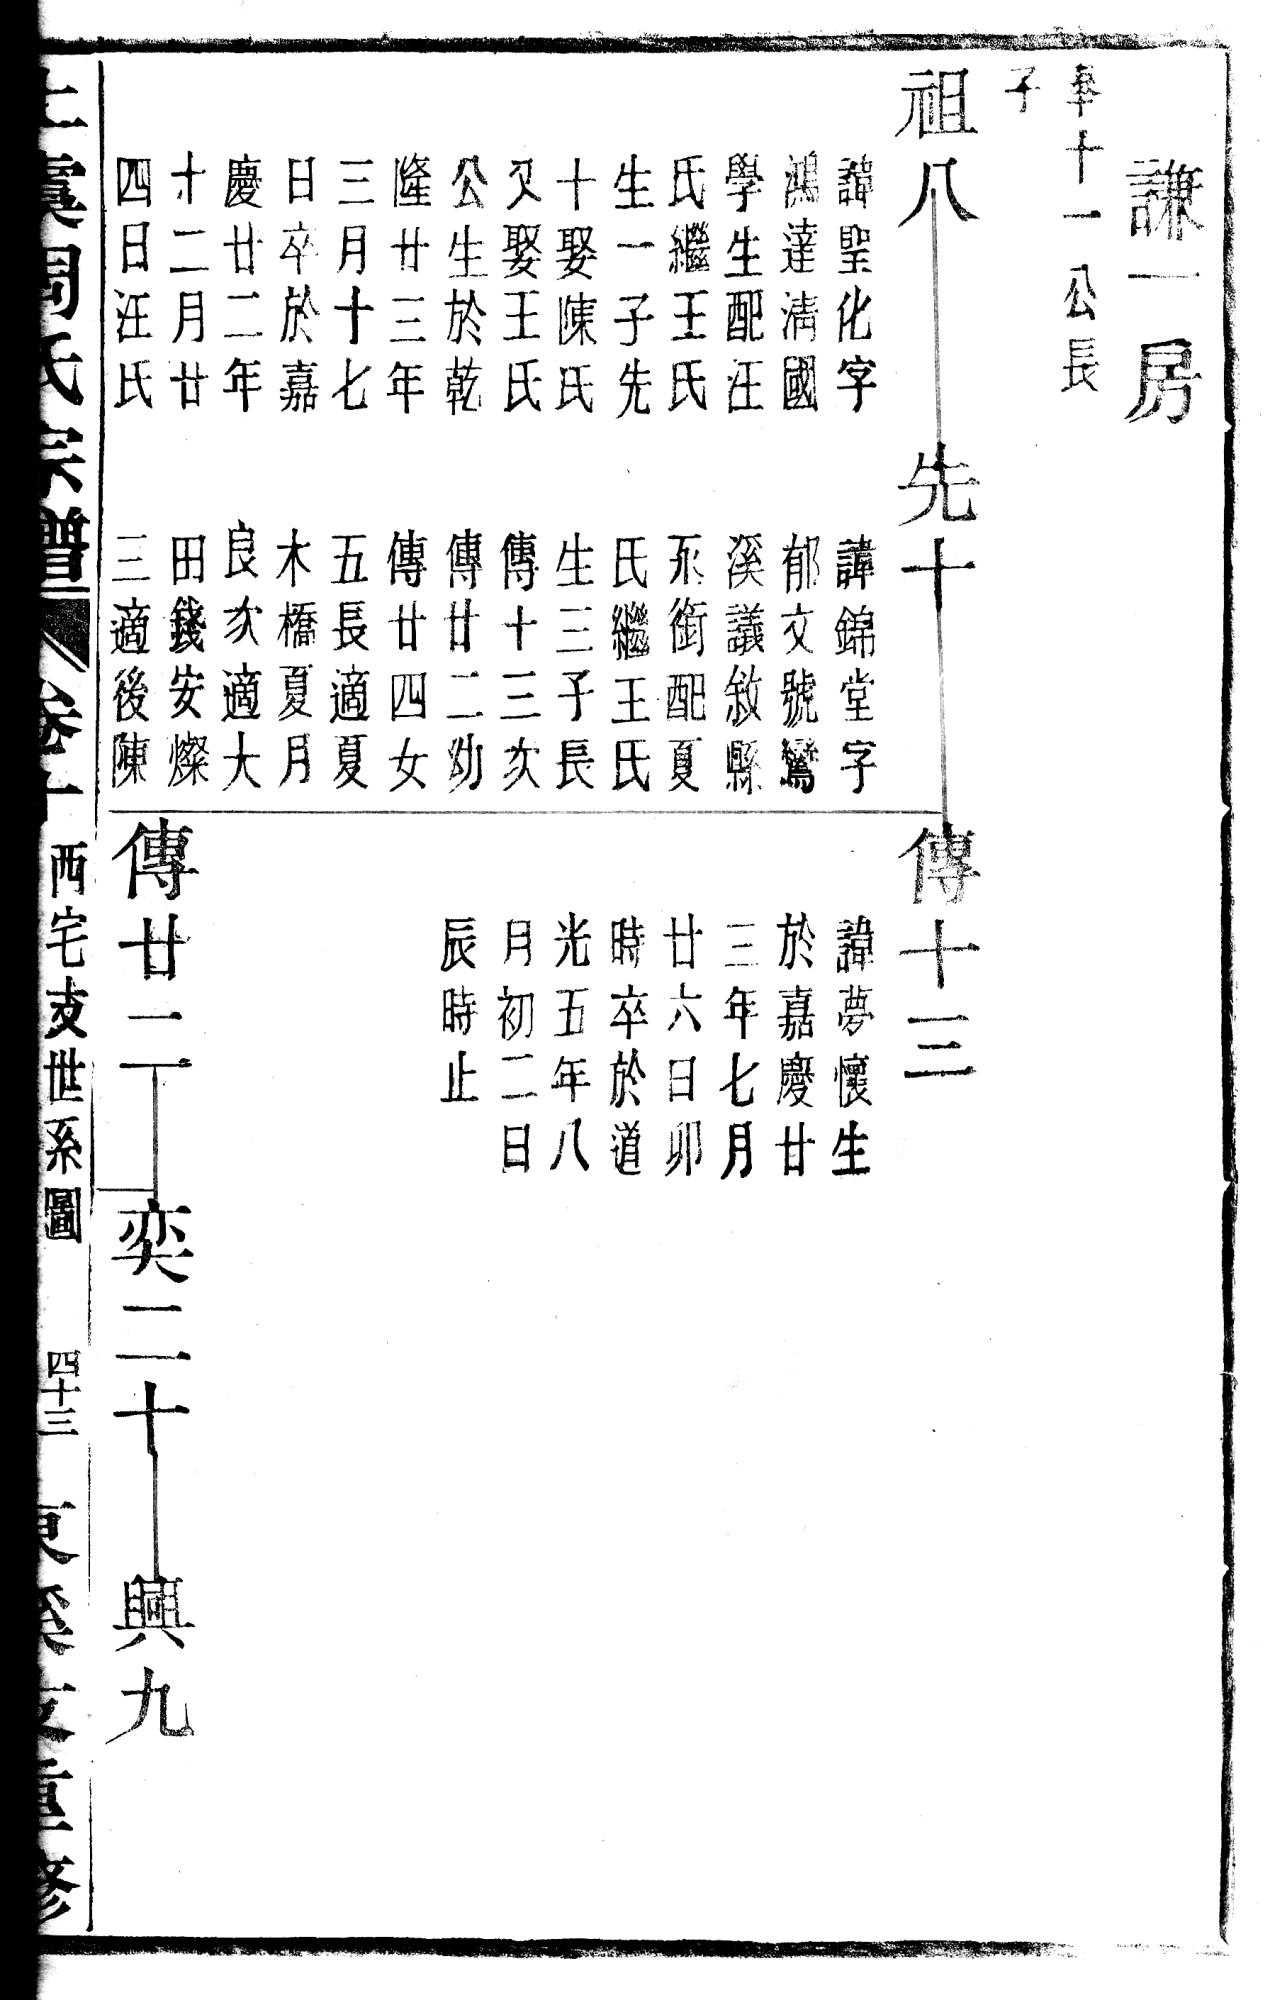 謙一房
奉十一公長
子
祖八
諱聖化字
鴻達清國
學生配汪
氏繼王氏
生一子先
十娶陳氏
又娶王氏
公生於乾
隆廿三年
三月十七
日卒於嘉
慶廿二年
十二月廿
四日汪氏
先十
諱錦堂字
郁文號鸞
溪議敘縣
丞銜配夏
氏繼王氏
生三子長
傳十三次
傳廿二幼
傳廿四女
五長適夏
木橋夏月
良次適大
田錢安燦
三適後陳
傳十三
諱夢懷生
於嘉慶廿
三年七月
廿六日卯
時卒於道
光五年八
月初二日
辰時止
傳廿二
奕二十
興九
上虞周氏宗譜
卷十
西宅支世系圖
四十三
支重修